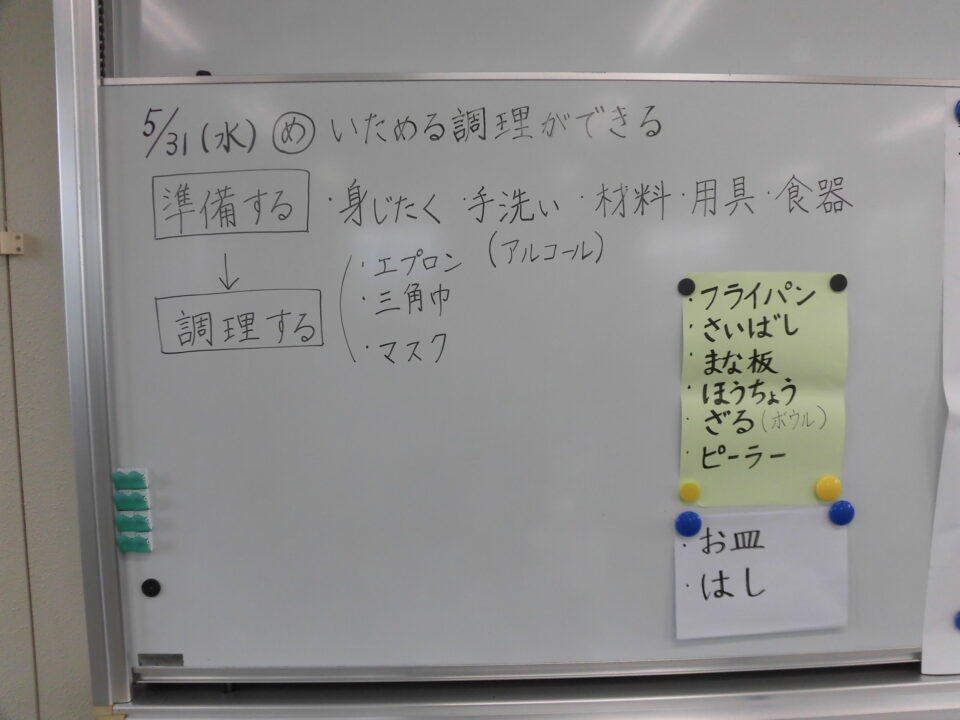 5/31(水) ㋱ いためる調理ができる
準備する ・身じたく ・手洗い ・材料・用具・食器
(アルコール)
・エプロン
・三角巾
・マスク
↓
調理する
・フライパン
・さいばし
・まな板
・ほうちょう
・ざる(ボウル)
・ピーラー
・お皿
・はし